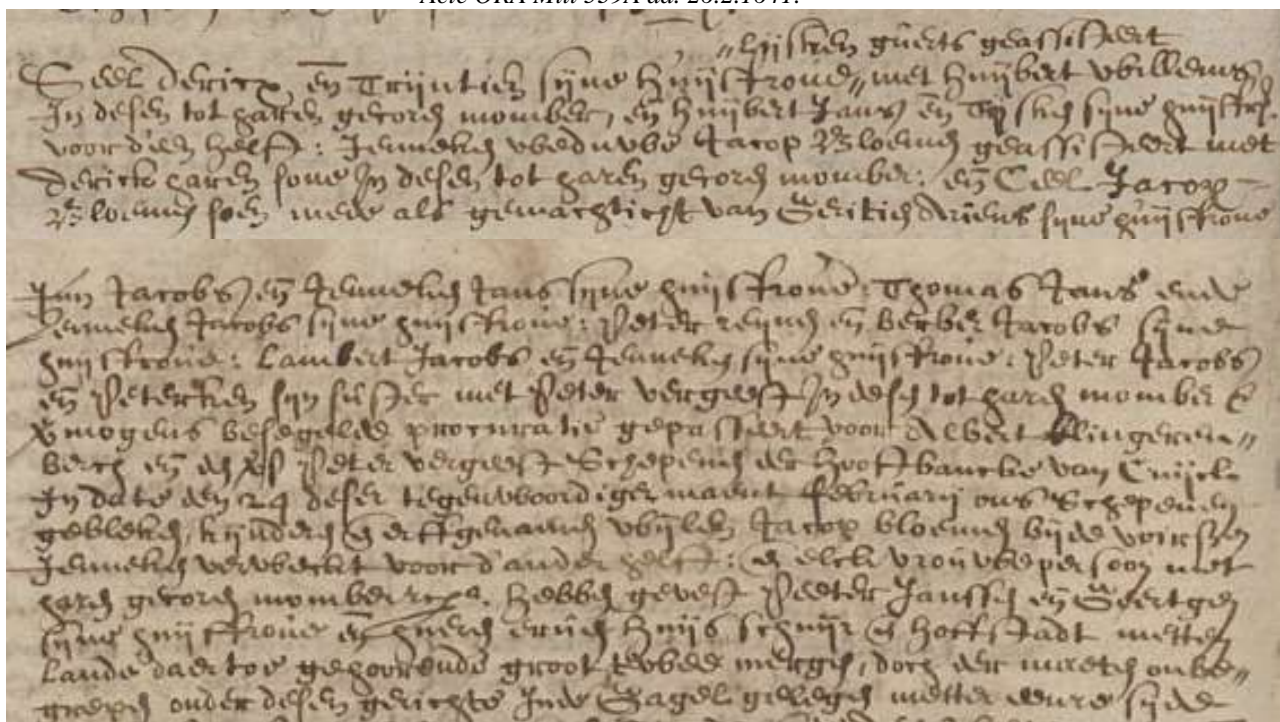 Acte ORA Mill 339A dd. 26.2.1641.
"Lijsken guerts geassisteert
Ceel Dericx, en Trijntien sijne Huijsfrouw" met Huijbert Willems
In desen tot haren gecoren momber, en Huijbert Jans en sijne huijsfr.
voor d'een helft: Jenneken weduwe Jacop Bloemen geassisteert met
Derick haren sone In desen tot haren gecoren momber: en Ceel Jacop
Bloemen soen mede als gemachticht van Geritien Driens sijne huijsfrouw
Jan Jacobs en Jenneken Jans sijne huijsfrouwe: Thomas Jans ende
Jenneken Jacobs sijne huijsfrouwe: Peter reijnen en Berber Jacobs sijne
huijsfrouwe: Lambert Jacobs en Jenneken sijne huijsfrouwe: Peter Jacobs
en Peterken sijn suster met Peter vergeest In desen tot haren momber
vermogens besegelde procuratie gepasseert voor Albert Clingeren"
berch en Peter vergeest Schepenen der Hooftbancke van Cuijck
In date den 24 deser tegenwoordiger maent february ons Schepenen
gebleken, kijnderen en erffgenamen wijlen Jacop bloemen bijde voirszen
Jenneken verweckt voor d'ander helft: en elck vrouwe persoon met
haren gecoren momber rcpa. Hebben gevest Peeter Janssen en Geertgen
sijne huijsfrouwe en hueren erven Huijs schuijr en Hoffstadt metten
Lande daertoe gehoorende groot twee mergen, doch der mateen onbe"
grepen onder desen gerichte Inde Hagel gelegen metter eenre sijde